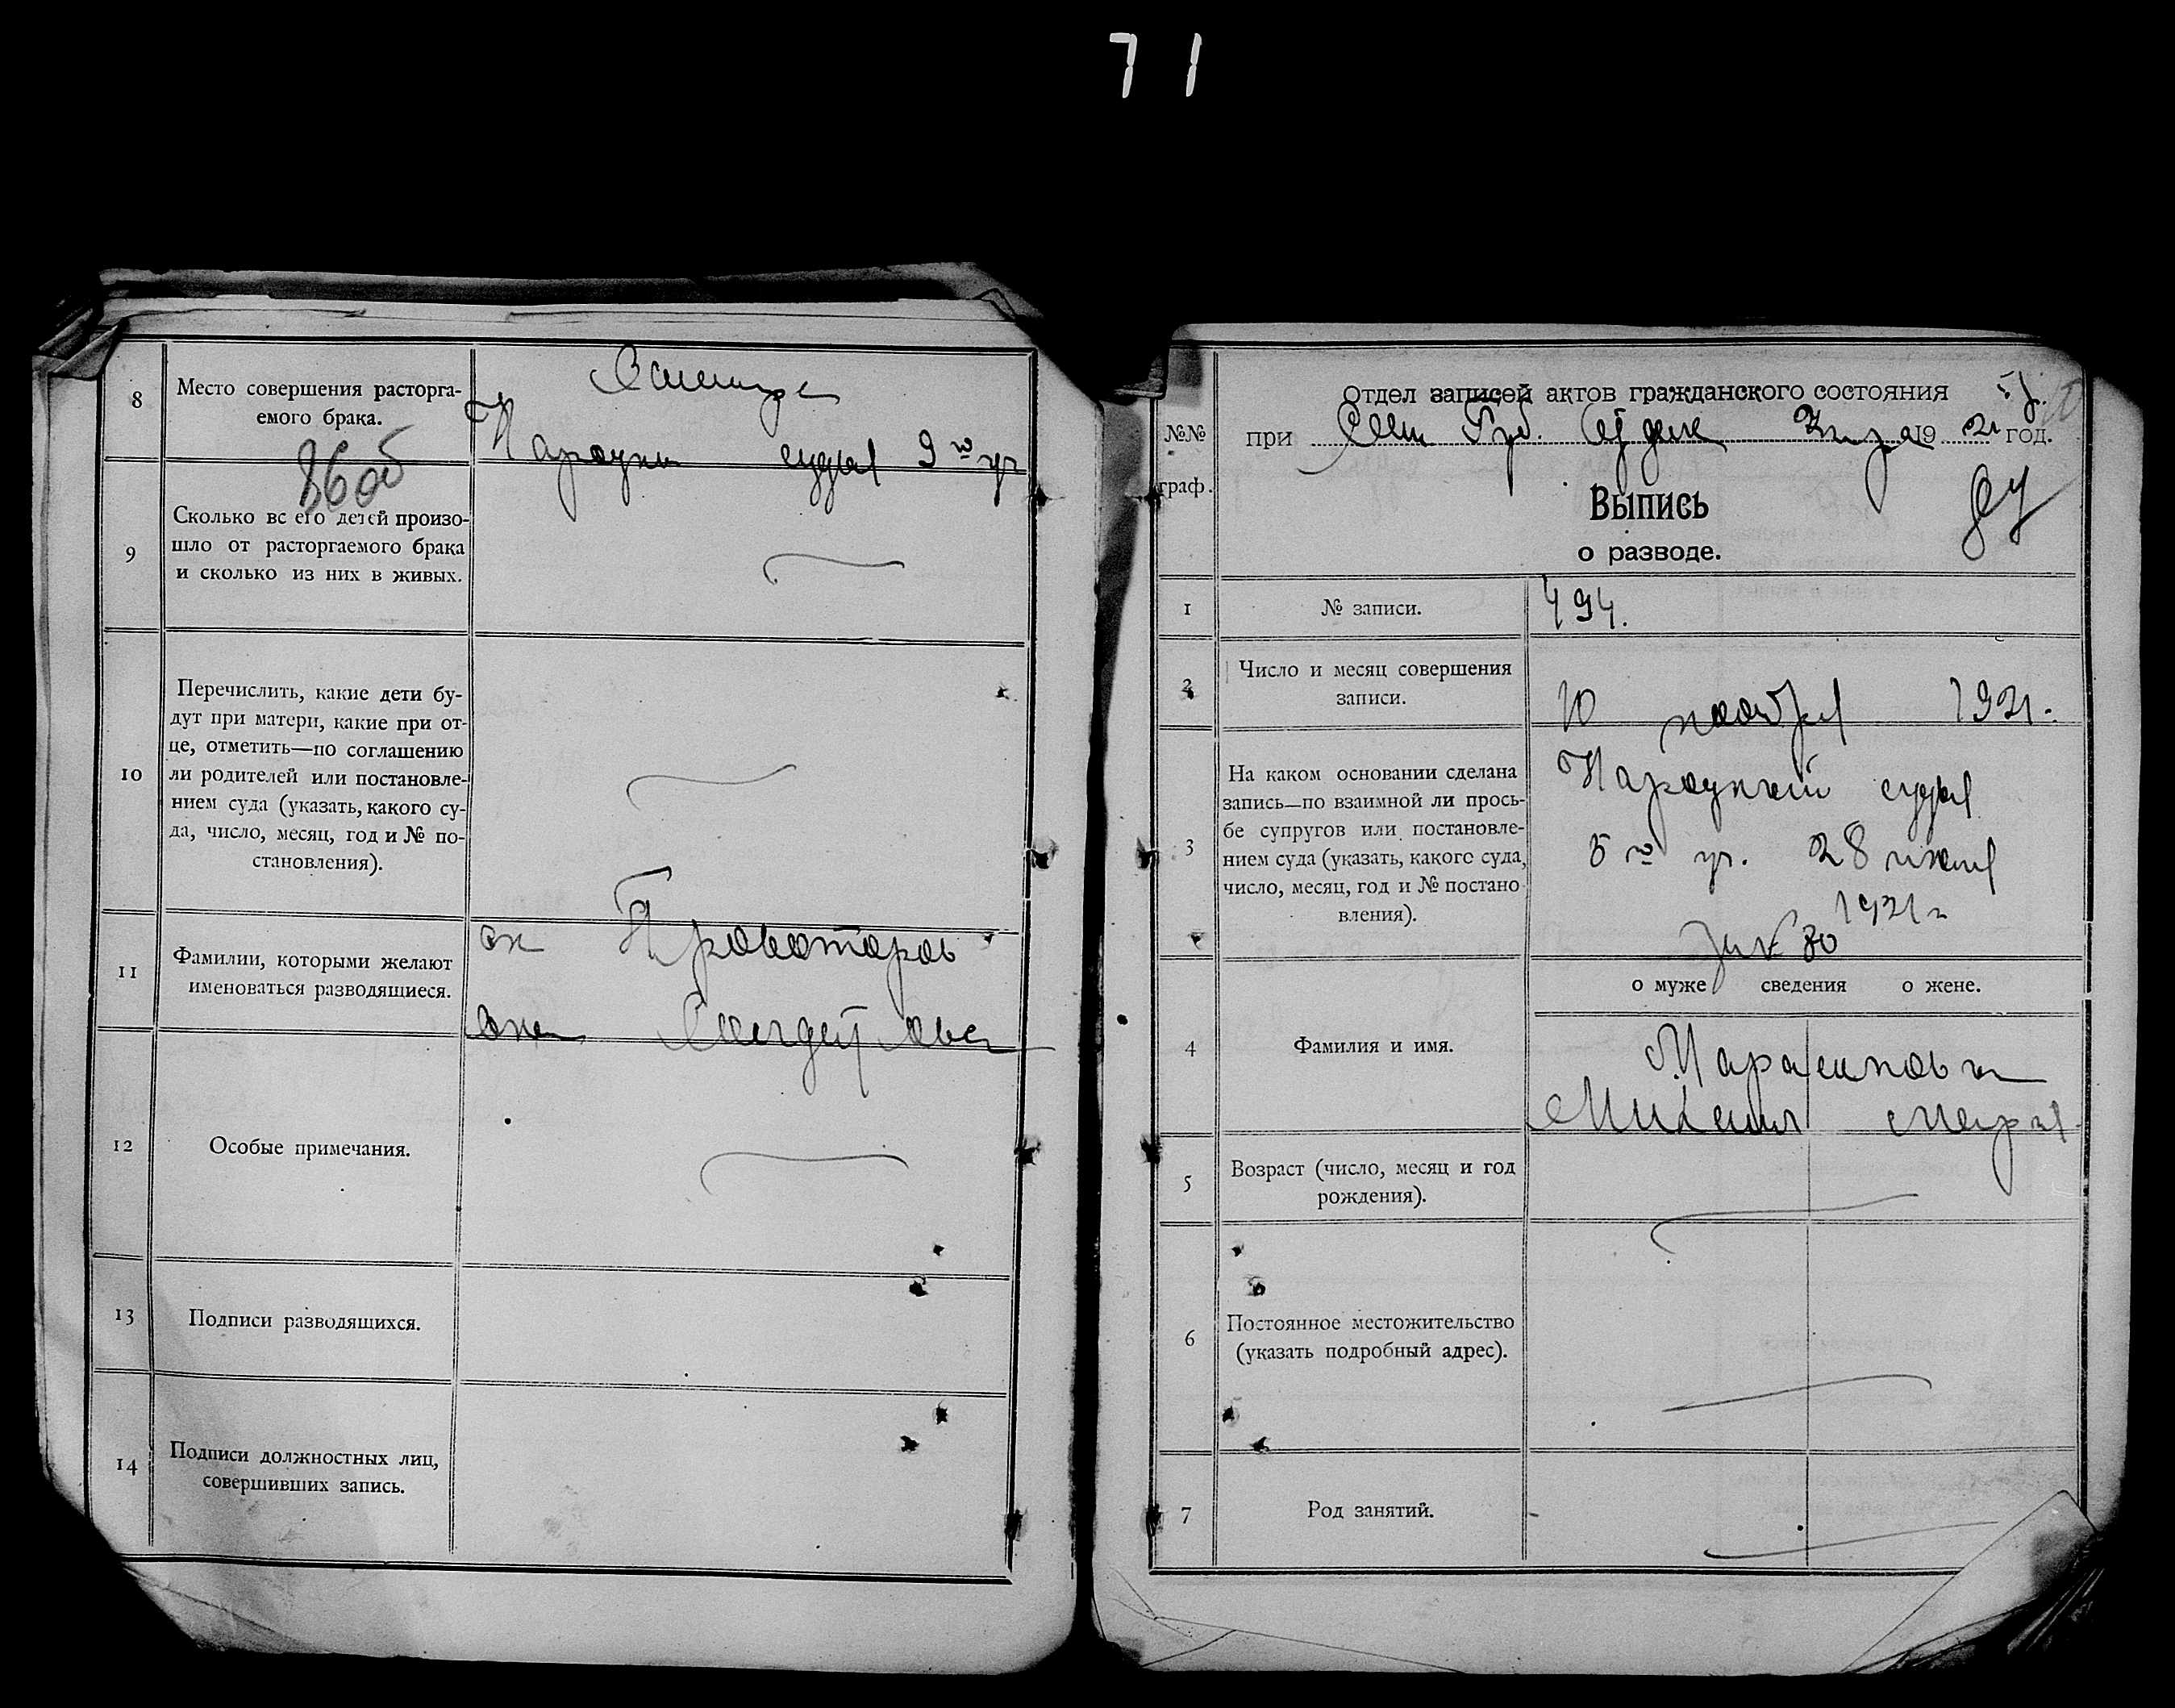 71
8
Место совершения расторга-
емого брака.
Народн судья 9го уч
9
Сколько всего детей произо-
шло от расторгаемого брака
и сколько из них в живых.
10
Перечислить, какие дети бу-
дут при матери, какие при от-
це, отметить—по соглашению
ли родителей или постановле-
нием суда (указать, какого су-
да, число, месяц, год и № по-
становления).
11
Фамилии, которыми желают
именоваться разводящиеся.
он Провоторов
она
12
Особые примечания.
13
Подписи разводящихся.
14
Подписи должностных лиц,
совершивших запись.
№№
граф.
Отдел записей актов гражданского состояния
при Губ. 1921 год.
Выпись
о разводе.
1
№ записи.
494.
2
Число и месяц совершения
записи.
10 ноября 1921.
3
На каком основании сделана
запись—по взаимной ли прось-
бе супругов или постановле-
нием суда (указать, какого суда,
число, месяц, год и № постано-
вления).
Народный судья
5го уч. 28 июля
1921 г
№ 80
о муже сведения о жене.
4
Фамилия и имя.
Михаил Мария
5
Возраст (число, месяц и год
рождения).
6
Постоянное местожительство
(указать подробный адрес).
7
Род занятий.